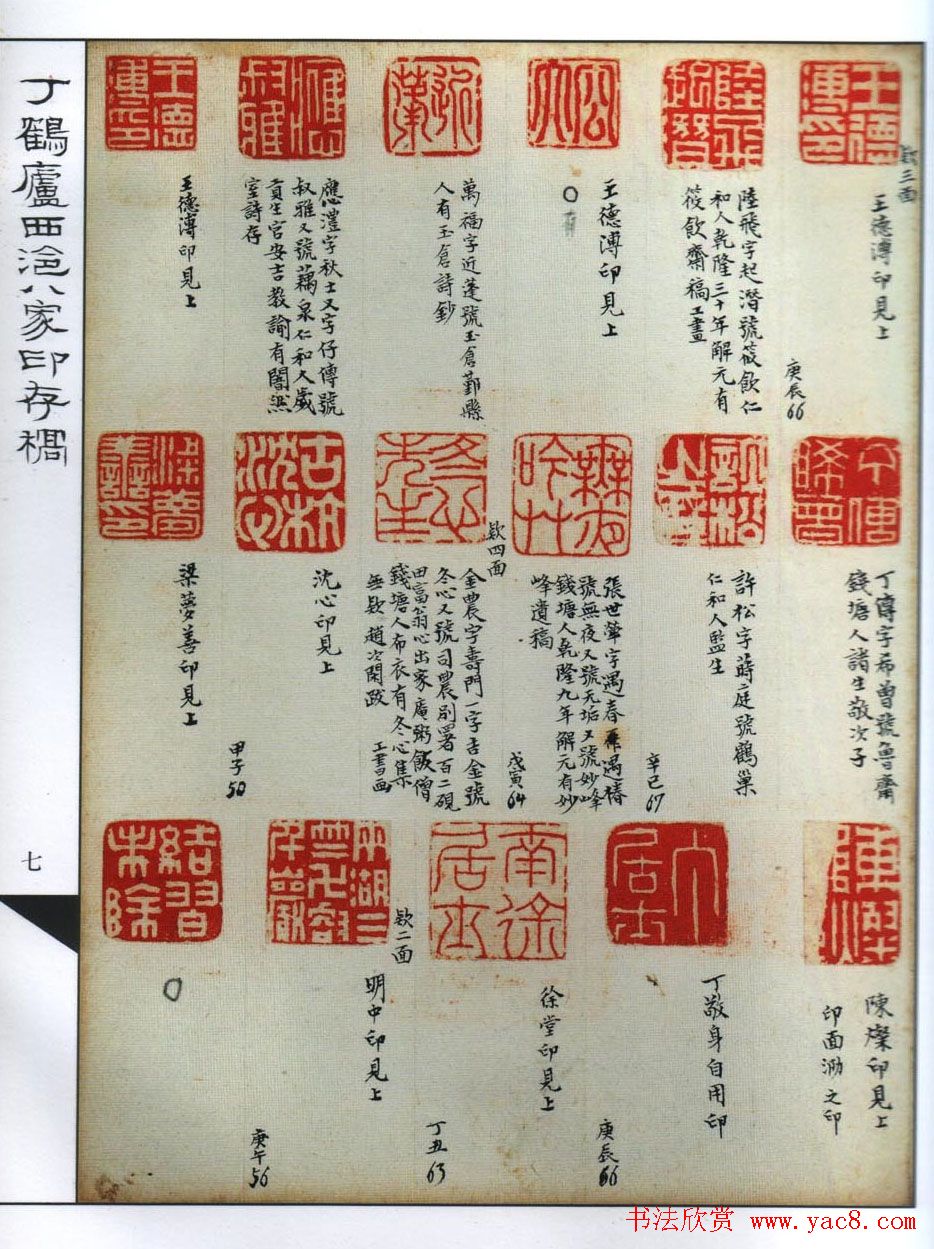 丁鶴廬西泠八家印存稿
七
王德溥印
款三面
王德溥印見上
陸飛起潛
陸飛字起潛號筱飲仁
和人乾隆三十年解元有
筱飲齋稿工畫
庚辰66
王德溥印見上
近蓬
萬福字近蓬號玉倉鄞縣
人有玉倉詩鈔
應澧叔雅
應澧字秋士又字仔傳號
叔雅又號藕泉仁和人歲
貢生官安吉教諭有闇然
室詩存
王德溥印
王德溥印見上
丁傳希曾
丁傳字希曾號魯齋
錢塘人諸生敬次子
許松
許松字蒔庭號鶴巢
仁和人監生
辛巳67
張世犖字遇春
號無夜又號无垢又號妙峰
錢塘人乾隆九年解元有妙
峰遺稿
戊寅64
冬心先生
款四面
金農字壽門一字吉金號
冬心又號司農別署百二硯
田富翁心出家庵粥飯僧
錢塘人布衣有冬心集
無款趙次閑跋
工書畫
沈心印見上
甲子50
梁夢善印
梁夢善印見上
陳燦
陳燦印見上
印面泐之印
丁居士
丁敬身自用印
庚辰66
徐堂印見上
丁丑63
款二面
明中印見上
庚午56
結習未除
书法欣赏 www.yac8.com